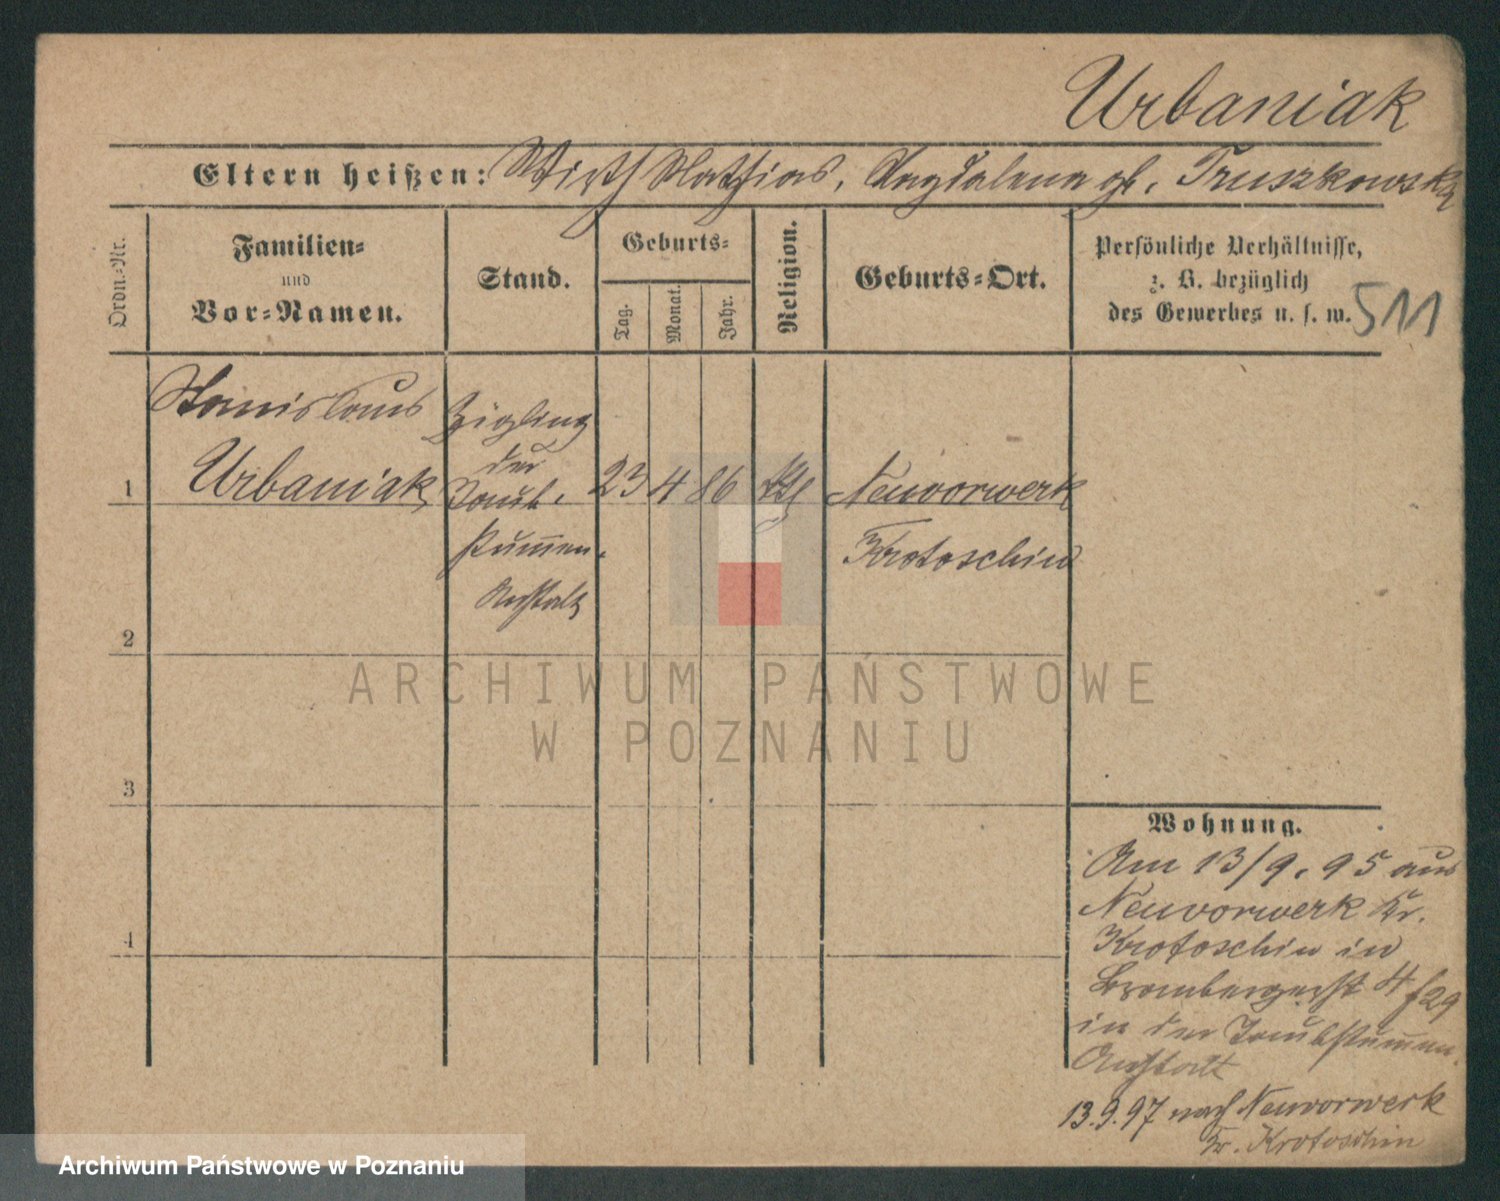 Urbaniak
Eltern heißen: Wirth Mathias, Magdalena gb. Truszkowska
Ordn.-Nr.
Familien-
und
Vor-Namen.
Stand.
Geburts-
Tag.
Monat.
Jahr.
Religion.
Geburts-Ort.
Persönliche Verhältnisse,
z. B. bezüglich
des Gewerbes u. s. w.
511
1
Stanislaus
Urbaniak
Zögling
der
Taub-
stummen-
Anstalt
23
4
86
Kth
Neuvorwerk
Krotoschin
2
3
4
Wohnung.
Am 13/9. 95 aus
Neuvorwerk Kr.
Krotoschin in
Brombergerst 4
f29
in der Taubstummen-
Anstalt
13.9.97 nach Neuvorwerk
Kr. Krotoschin
ARCHIWUM PAŃSTWOWE
W POZNANIU
Archiwum Państwowe w Poznaniu